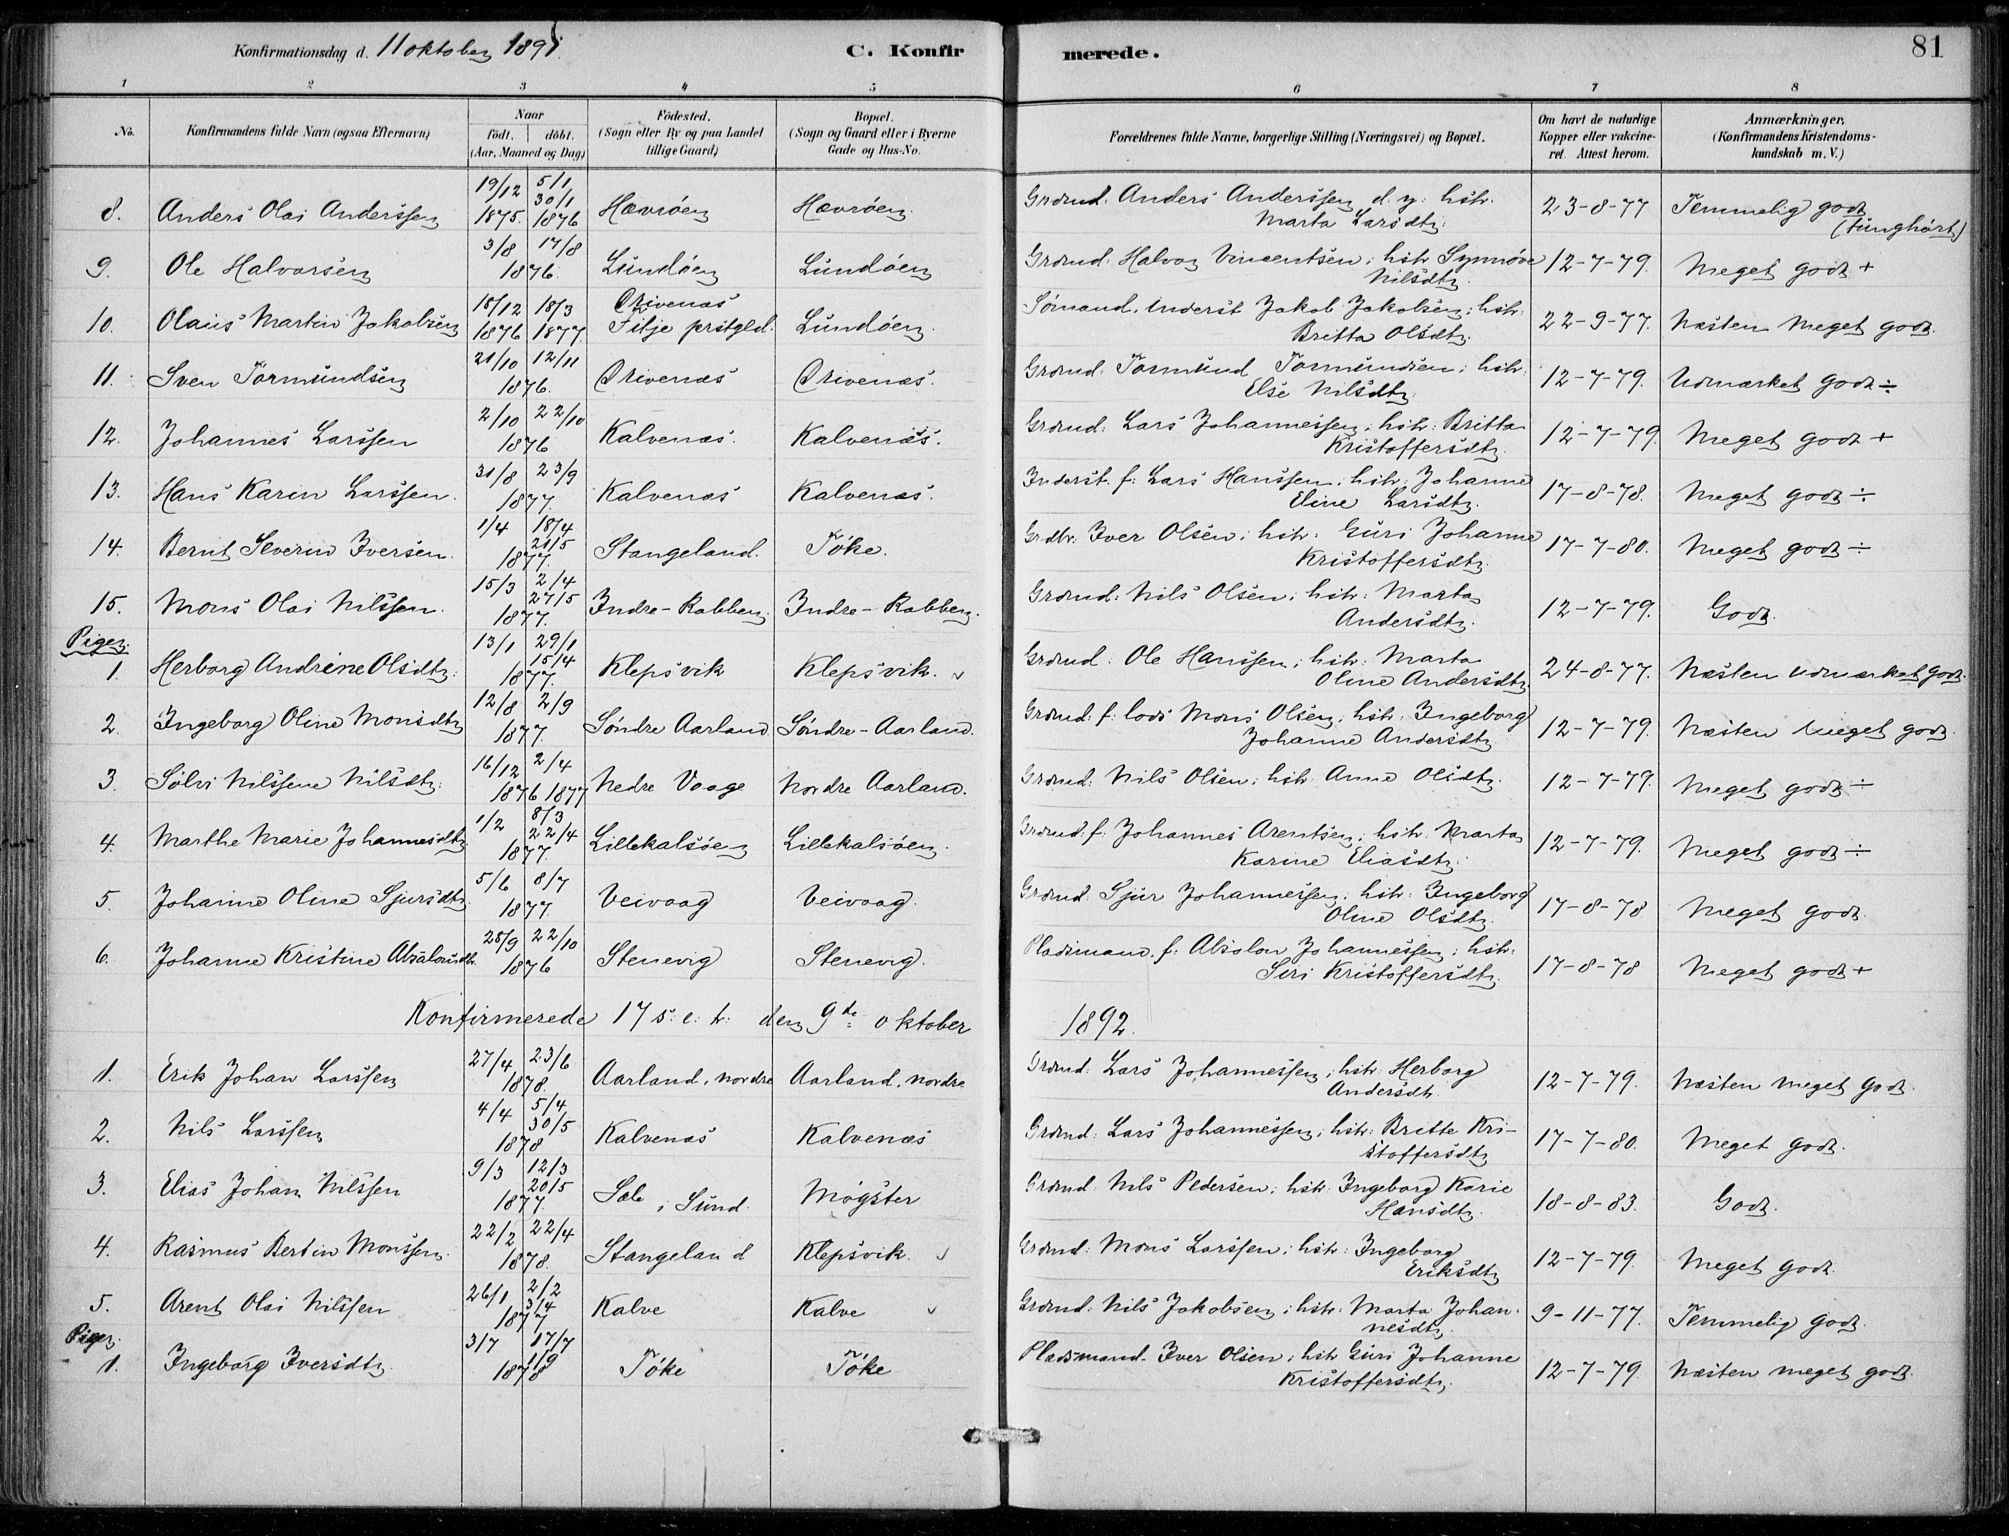 Konfirmationsdag d. 11 oktober 1891.
C. Konfirmerede.
81
1 2 3 4 5 6 7 8
No.
Konfirmandens fulde Navn (ogsaa Efternavn)
Naar
födt. döbt.
(Aar, Maaned og Dag)
Födested.
(Sogn eller By og paa Landet
tillige Gaard)
Bopæl.
(Sogn og Gaard eller i Byerne
Gade og Hus-No.
Forældrenes fulde Navne, borgerlige Stilling (Næringsvei) og Bopæl.
Om havt de naturlige
Kopper eller vakcine-
ret. Attest herom.
Anmærkninger.
(Konfirmandens Kristendoms-
kundskab m. V.)
8. Anders Olai Anderssen 19/12 1875. 5/1 30/1 1876 Hævröen Hævröen. Grdmd. Anders Anderssen d. y. hstr. Marta Larsdtr. 23-8-77 Temmelig godt (tunghørt)
9. Ole Halvorsen 3/8 17/8 1876. Lundöen Lundöen Grdmd. Halvor Vincentsen; hstr. Synnöve Nilsdtr. 12-7-79. Meget godt +
10. Olaus Martin Jakobsen 18/12 1876 18/3 1877. Drivenæs Fitje prstgld. Lundöen. Sömand. Inderst Jakob Jakobsen; hstr. Britta Olsdtr. 22-9-77. Næsten Meget godt.
11. Sven Tormundsen 21/10 12/11 1876. Drivenæs Drivenæs. Grdmd. Tormund Tormundsen; hstr. Else Nilsdtr. 12-7-79. Udmærket Godt ÷
12. Johannes Larssen 2/10 22/10 1876 Kalvenæs. Kalvenæs. Grdmd: Lars Johannessen; hstr: Britta Kristoffersdtr. 12-7-79. Meget godt +
13. Hans Karin Larssen. 31/8 23/9 1877. Kalvenæs Kalvenæs. Inderst. f. Lars Hanssen; hstr. Johanne Eline Larsdtr. 17-8-78. Meget godt ÷
14. Bernt Severin Iversen. 1/4 18/4 21/5 1877. Stangeland. Töke. Grdbr. Iver Olsen; hstr. Guri Johanne Kristoffersdtr. 17-7-80. Meget godt ÷
15. Mons Olai Nilssen. 15/3 2/4 27/5 1877. Indre-Rabben. Indre-Rabben. Grdmd: Nils Olsen; hstr: Marta Andersdtr. 12-7-79. Godt.
Piger.
1. Herborg Andrine Olsdtr. 13/1 29/1 15/4 1877. Klepsvik Klepsvik. Grdmd: Ole Hanssen; hstr: Marta Oline Andersdtr. 24-8-77. Næsten udmærket godt.
2. Ingeborg Oline Monsdtr 12/8 2/9 1877. Söndre Aarland Söndre-Aarland. Grdmd. f. lods Mons Olsen; hstr. Ingeborg Johanne Andersdtr 12-7-79. Næsten Meget godt.
3. Sölvi Nilssene Nilsdtr. 16/12 2/4 1876 1877 Nedre Vaage Nordre Aarland. Grdmd. Nils Olsen; hstr. Anne Olsdtr. 12-7-79. Meget godt ÷
4. Marthe Marie Johannesdtr 1/2 8/3 22/4 1877. Lillekalsöen Lillekalsöen. Grdmd. f. Johannes Arentsen; hstr. Marta Karine Eliasdtr. 12-7-79. Meget godt ÷
5. Johanne Oline Sjursdtr 5/6 8/7 1877. Veivaag Veivaag. Grdmd. Sjur Johannessen; hstr: Ingeborg Oline Olsdtr. 17-8-78 Meget godt
6. Johanne Kristine Absalonsdtr. 28/9 22/10 1876 Stenevig Stenevig. Pladsmand. f. Absolon Johannessen; hstr. Siri Kristoffersdtr. 17-8-78 Meget godt +
Konfirmerede 17 s. e. tr. den 9de oktober 1892.
1. Erik Johan Larssen 27/4 23/6 1878. Aarland, nordre Aarland, nordre Grdmd. Lars Johannessen; hstr. Herborg Andersdtr. 12-7-79. Næsten meget godt.
2. Nils Larssen 4/4 5/4 30/5 1878 Kalvenæs Kalvenæs Grdmd: Lars Johannessen; hstr: Britte Kristoffersdtr 17-7-80. Meget godt.
3. Elias Johan Nilssen 9/3 12/3 20/5 1877. Sale i Sund. Mögster Grdmd. Nils Pedersen; hstr. Ingeborg Karie Hansdtr. 18-8-83. Godt.
4. Rasmus Bertin Monssen. 22/2 22/4 1878. Stangeland Klepsvik. Grdmd. Mons Larssen; hstr. Ingeborg Eriksdtr 12-7-79. Meget godt.
5. Arent Olai Nilssen 26/1 2/2 3/4 1877 Kalve Kalve Grdmd. Nils Jakobsen; hstr. Marta Johannesdtr. 9-11-77. Temmelig godt.
Piger.
1. Ingeborg Iversdtr. 3/7 17/7 1/9 1878 Töke Töke Pladsmand. Iver Olsen; hstr Guri Johanne Kristoffersdtr. 12-7-79. Næsten meget godt.